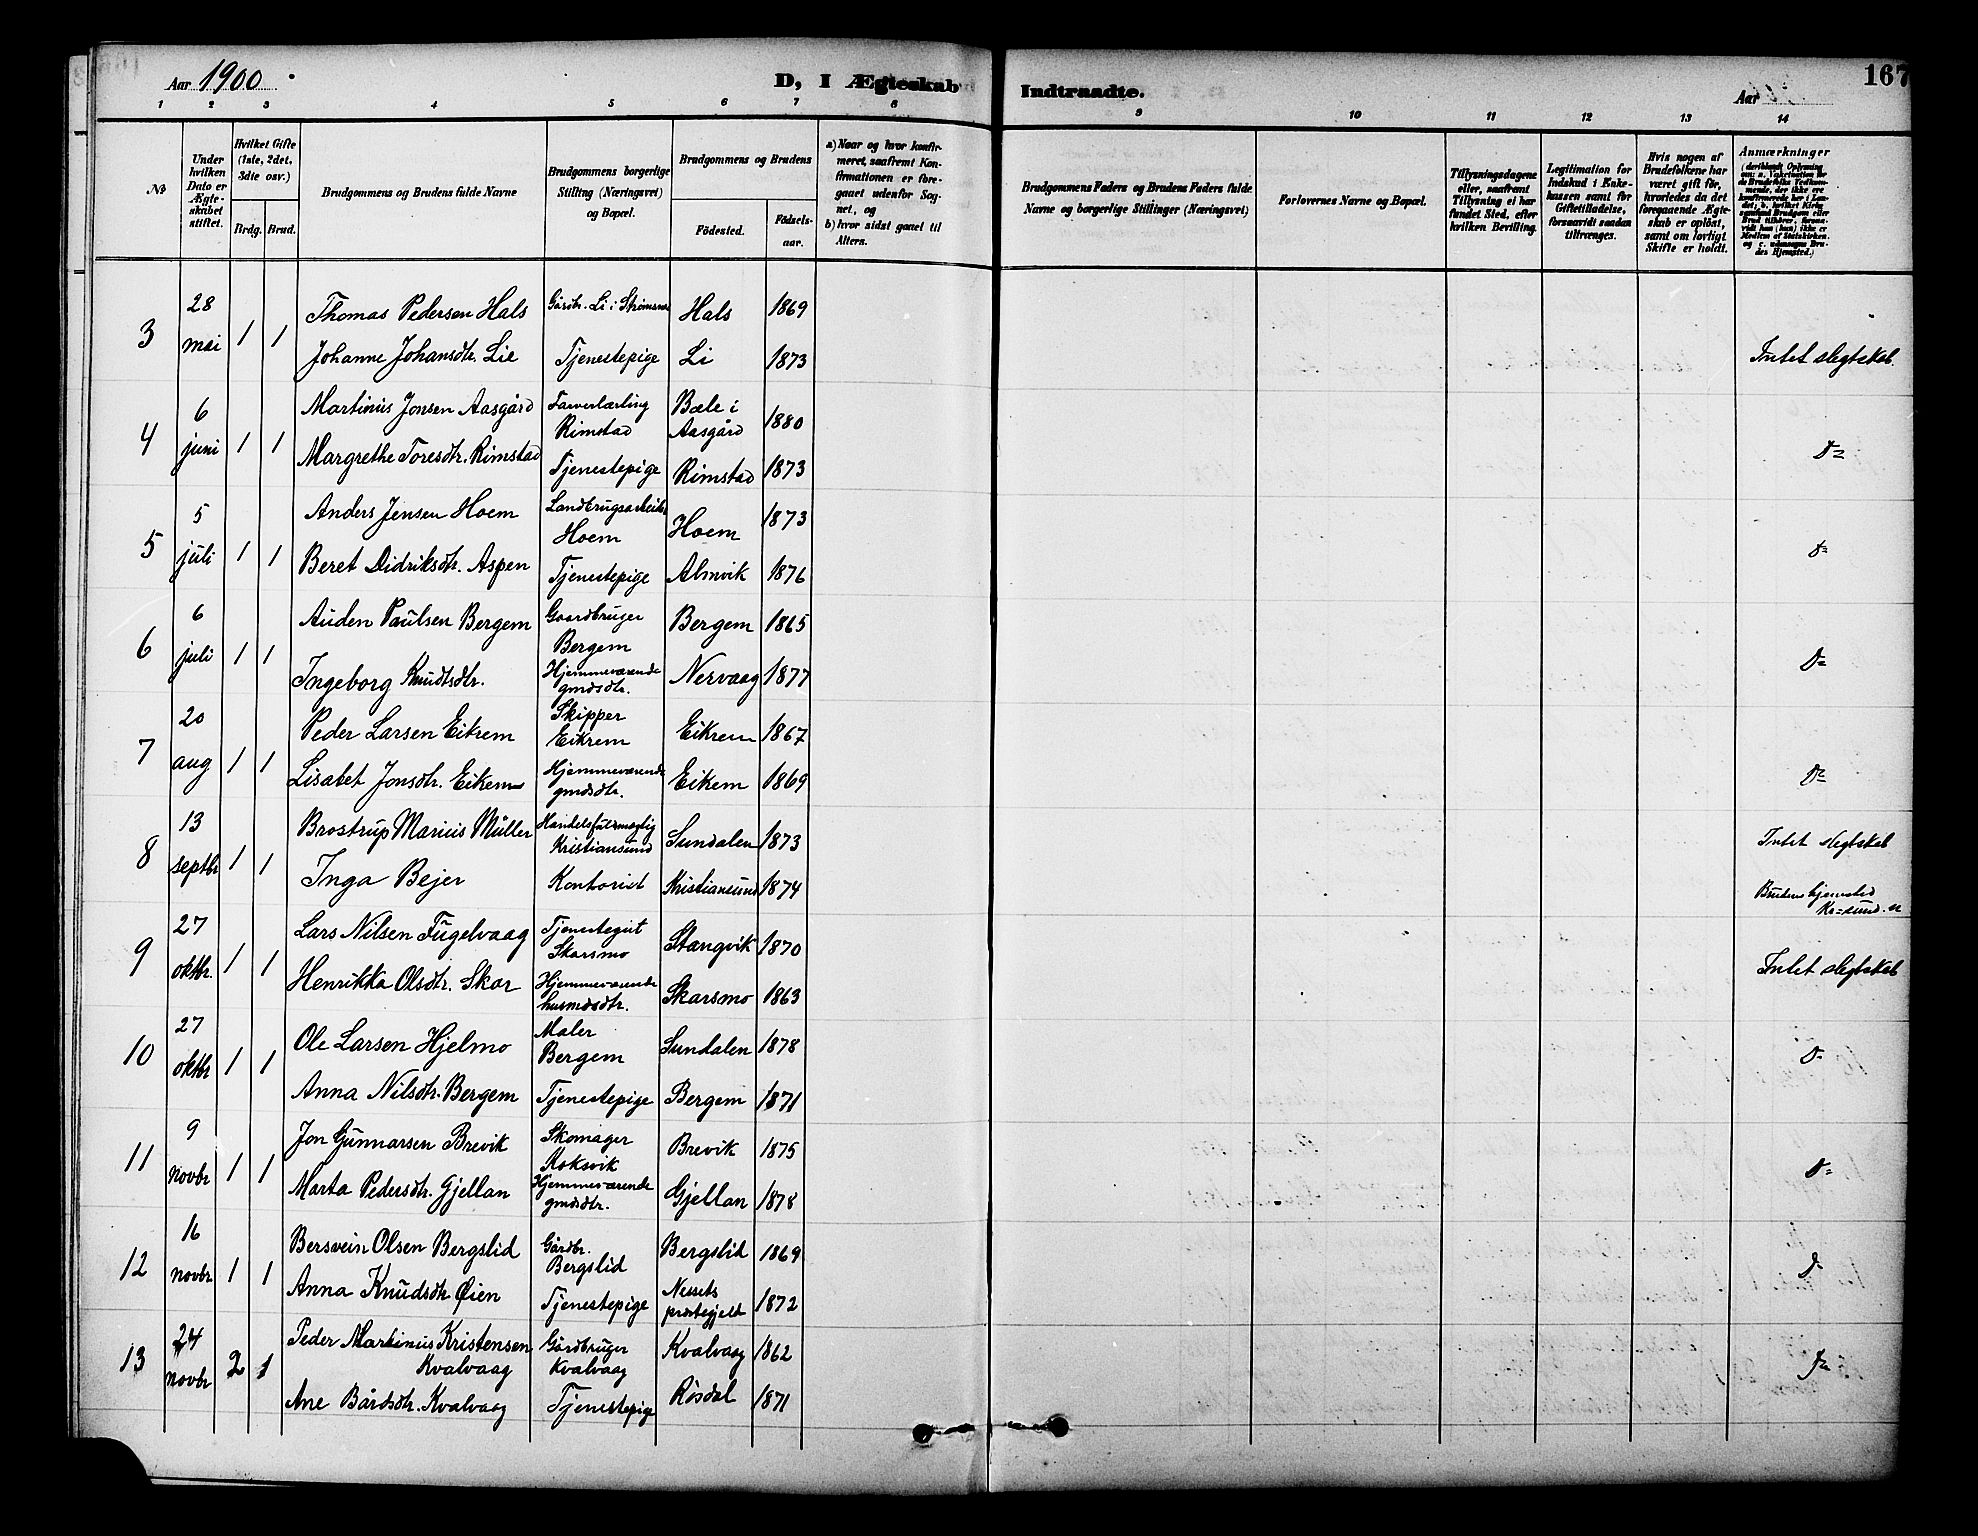 Aar 1900.
D, I Ægteskab Indtraadte.
167
Aar
1 2 3 4 5 6 7 8 9 10 11 12 13 14
№
Under hvilken Dato er Ægteskabet stiftet.
Hvilket Gifte (1ste, 2det, 3die osv.)
Brdg. Brud.
Brudgommens og Brudens fulde Navne
Brudgommens borgerlige Stilling (Næringsvei) og Bopæl.
Brudgommens og Brudens
Födested. Födsels-aar.
a) Naar og hvor konfirmeret, saafremt Konfirmationen er foregaaet udenfor Sognet, og
b) hvor sidst gaaet til Alters.
Brudgommens Faders og Brudens Faders fulde Navne og borgerlige Stillinger (Næringsvei)
Forlovernes Navne og Bopæl.
Tillysningsdagene eller, saafremt Tillysning ei har fundet Sted, efter hvilken Bevilling.
Legitimation for Indskud i Enkekassen samt for Giftetilladelse, forsaavidt saadan tiltrænges.
Hvis nogen af Brudefolkene har været gift för, hvorledes da det foregaaende Ægteskab er oplöst, samt om lovligt Skifte er holdt.
Anmærkninger
3 28 mai 1 1 Thomas Pedersen Hals Gårdbr. Li i Hals 1869
Johanne Johansdtr. Lie Tjenestepige Li 1873 Intet slegtskab.
4 6 juni 1 1 Martinus Jonsen Aasgård Farverlærling Rimstad Bæle i Aasgård 1880
Margrethe Toresdtr. Rimstad Tjenestepige Rimstad 1873 D=
5 5 juli 1 1 Anders Jensen Hoem Landbrugsarbeider Hoem Hoem 1873
Beret Didriksdtr. Aspen Tjenestepige Almvik 1876 D=
6 6 juli 1 1 Auden Paulsen Bergem Gaardbruger Bergem Bergem 1865
Ingeborg Knudtsdtr. Hjemmeværende gmdsdtr. Nervaag 1877 D=
7 20 aug 1 1 Peder Larsen Eikrem Skipper Eikrem Eikrem 1867
Lisabet Jonsdtr. Eikem Hjemmeværende gmdsdtr. Eikem 1869 D=
8 13 septbr 1 1 Brostrup Marius Müller Handelsfuldmægtig Kristiansund Sundalen 1873 Intet slegtskab
Inga Bejer Kontorist Kristiansund 1874 Brudens hjemsted Kr=sund. N
9 27 oktbr. 1 1 Lars Nilsen Fugelvaag Tjenestegut Skarsmo Stangvik 1870
Henrikka Olsdtr. Skar Hjemmeværende husmdsdtr. Skarsmo 1863 Intet slegtskab
10 27 oktbr 1 1 Ole Larsen Hjelmo Maler Bergem Sundalen 1878
Anna Nilsdtr. Bergem Tjenestepige Bergem 1871 D-
11 9 novbr 1 1 Jon Gunnarsen Brevik Skomager Koksvik Brevik 1875
Marta Pedersdtr. Gjellan Hjemmeværende gmdsdtr. Gjellan 1878 D=
12 16 novbr 1 1 Bersvein Olsen Bergslid Gårdbr. Bergslid Bergslid 1869
Anna Knudsdtr Øien Tjenestepige Nessets prestegjeld 1872 D-
13 24 novbr 2 1 Peder Martinus Kristensen Kvalvaag Gårdbruger Kvalvaag Kvalvaag 1862
Ane Bårdsdtr. Kvalvaag Tjenestepige Rösdal 1871 D=